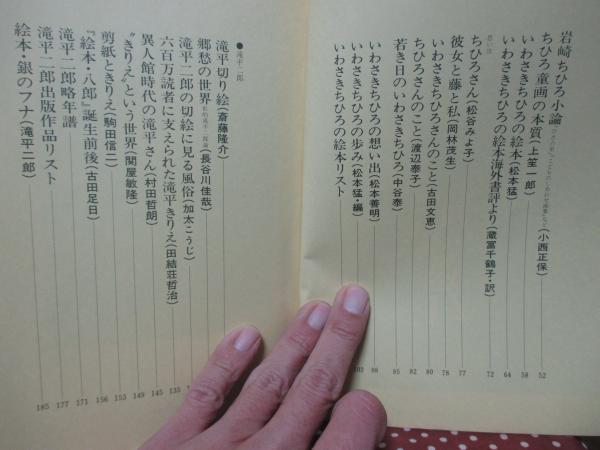 岩崎ちひろ小論(小西正保) 52
ちひろ童画の本質(上笙一郎) 58
いわさきちひろの絵本(松本猛) 64
いわさきちひろの絵本海外書評より(蔵冨千鶴子・訳) 72
思い出
ちひろさん(松谷みよ子) 77
彼女と藤と私(岡林茂生) 78
いわさきちひろさんのこと(古田文恵) 80
ちひろさんのこと(渡辺泰子) 82
若き日のいわさきちひろ(中谷泰) 85
いわさきちひろの想い出(松本善明) 88
いわさきちひろの歩み(松本猛・編) 102
いわさきちひろの絵本リスト
●滝平二郎
滝平切り絵(斎藤隆介)
郷愁の世界(長谷川佳哉)
滝平二郎の切絵に見る風俗(加太こうじ)
六百万読者に支えられた滝平きりえ(田結荘哲治) 135
異人館時代の滝平さん(村田哲朗) 145
"きりえ"という世界(関屋敏隆) 149
剪紙ときりえ(駒田信二) 153
『絵本・八郎』誕生前後(古田足日) 156
滝平二郎略年譜 171
滝平二郎出版作品リスト 177
絵本・銀のフナ(滝平二郎) 185